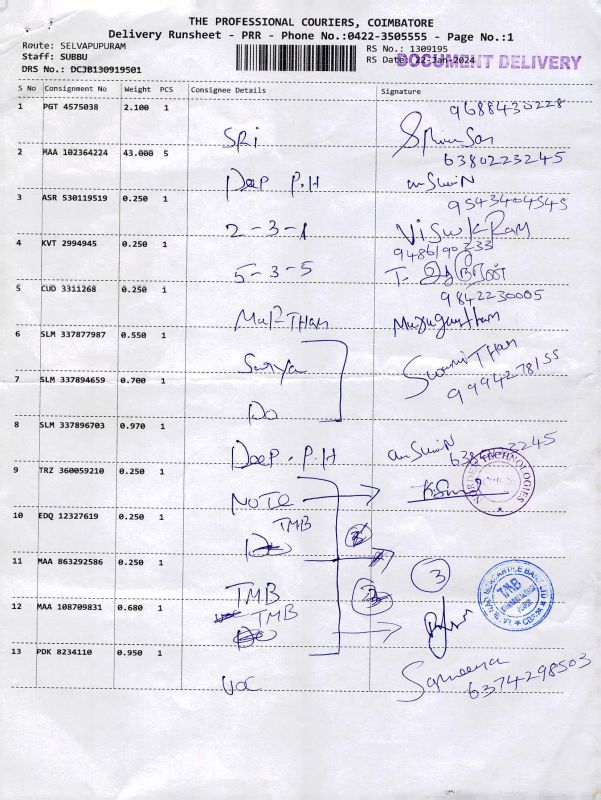 THE PROFESSIONAL COURIERS, COIMBATORE
Delivery Runsheet - PRR - Phone No.:0422-3505555 - Page No.:1
Route: SELVAPUPURAM
Staff: SUBBU
DRS No.: DCJB130919501
RS No.: 1309195
RS Date: 22-Jan-2024
DOCUMENT DELIVERY
S No Consignment No Weight PCS Consignee Details Signature
1 PGT 4575038 2.100 1
9688430228
SRi
2 MAA 102364224 43.000 5
6380223245
Deep P.H
3 ASR 530119519 0.250 1
9543404545
2-3-1 Viswk Ram
4 KVT 2994945 0.250 1
5-3-5
5 CUD 3311268 0.250 1
9842230005
6 SLM 337877987 0.550 1
Surya
7 SLM 337894659 0.700 1
9994278155
Do
8 SLM 337896703 0.970 1
Deep . P.H
9 TRZ 360059210 0.250 1
NOTE
10 EDQ 12327619 0.250 1
TMB
3
11 MAA 863292586 0.250 1
3
TMB
12 MAA 108709831 0.680 1
TMB
TMB
13 PDK 8234110 0.950 1
Sameena
6374298503
VOC